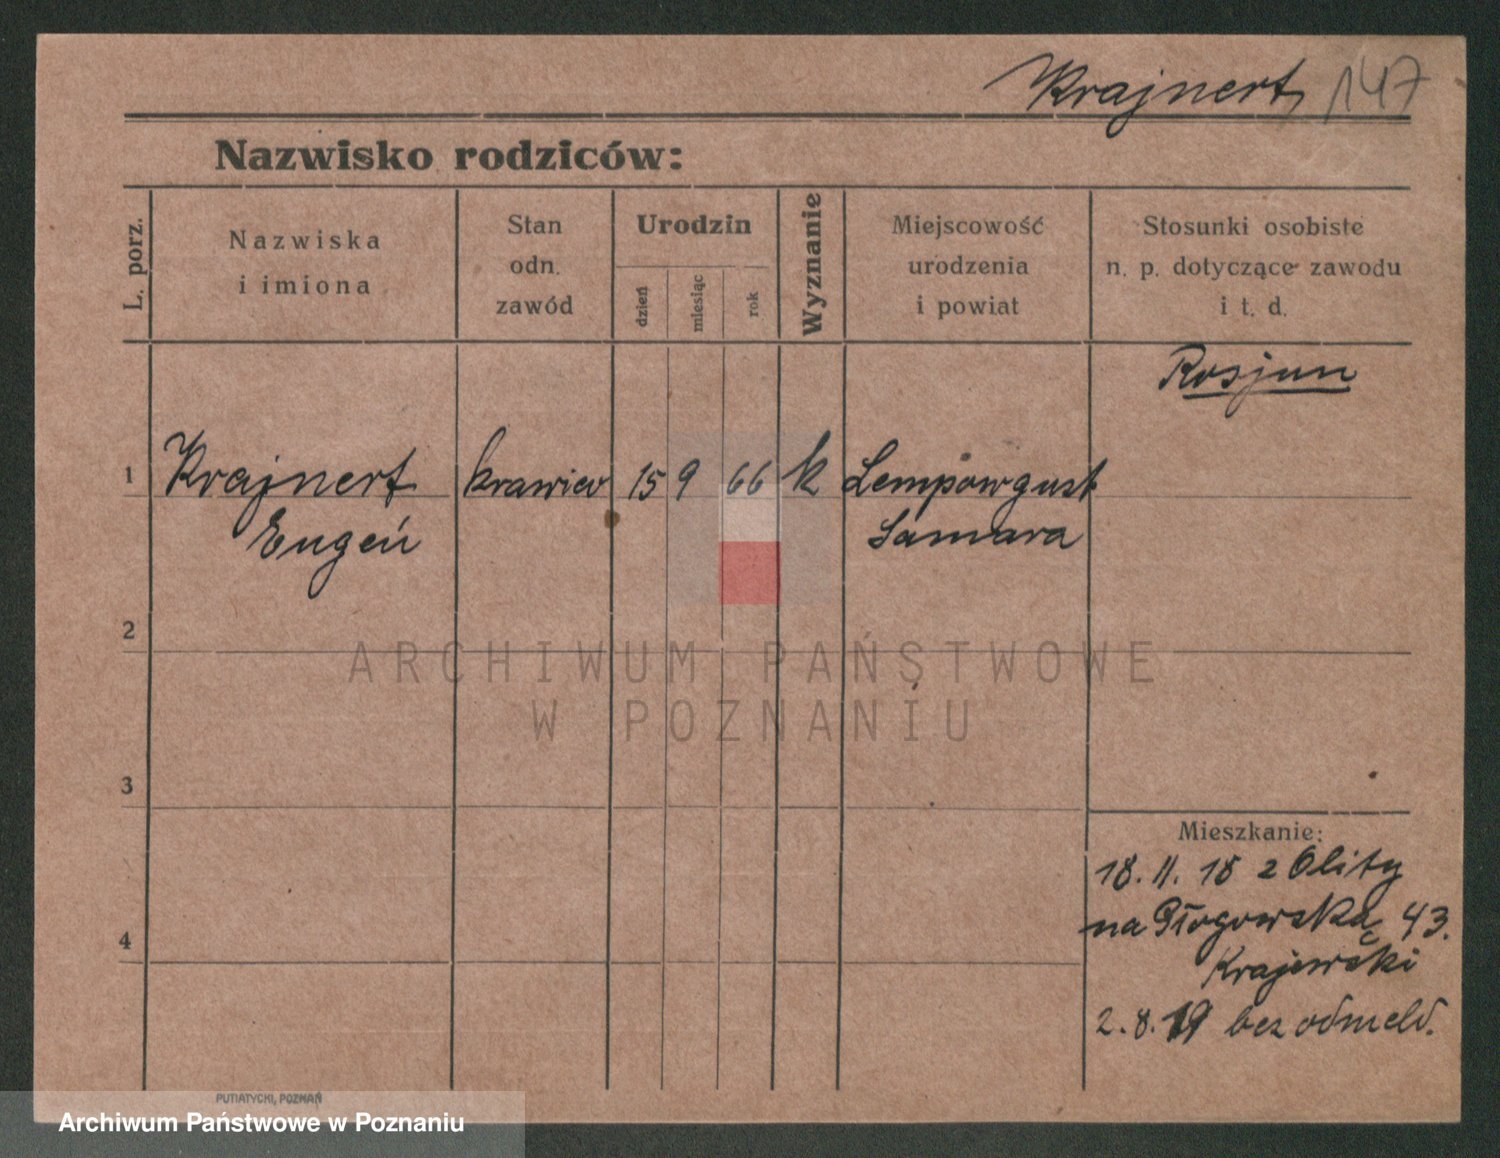 Krajnert 147
Nazwisko rodziców:
L. porz.
Nazwiska
i imiona
Stan
odn.
zawód
Urodzin
dzień
miesiąc
rok
Wyznanie
Miejscowość
urodzenia
i powiat
Stosunki osobiste
n. p. dotyczące zawodu
i t. d.
Rosjan
1 Krajnert krawiec 15 9 66 k Lempowgust
Eugeń Samara
2
3
4
Mieszkanie:
18.11.18 z Olity
na Głogowską 43.
Krajewski
2.8.19 bez odmeld.
ARCHIWUM PAŃSTWOWE
W POZNANIU
PUTIATYCKI, POZNAŃ
Archiwum Państwowe w Poznaniu